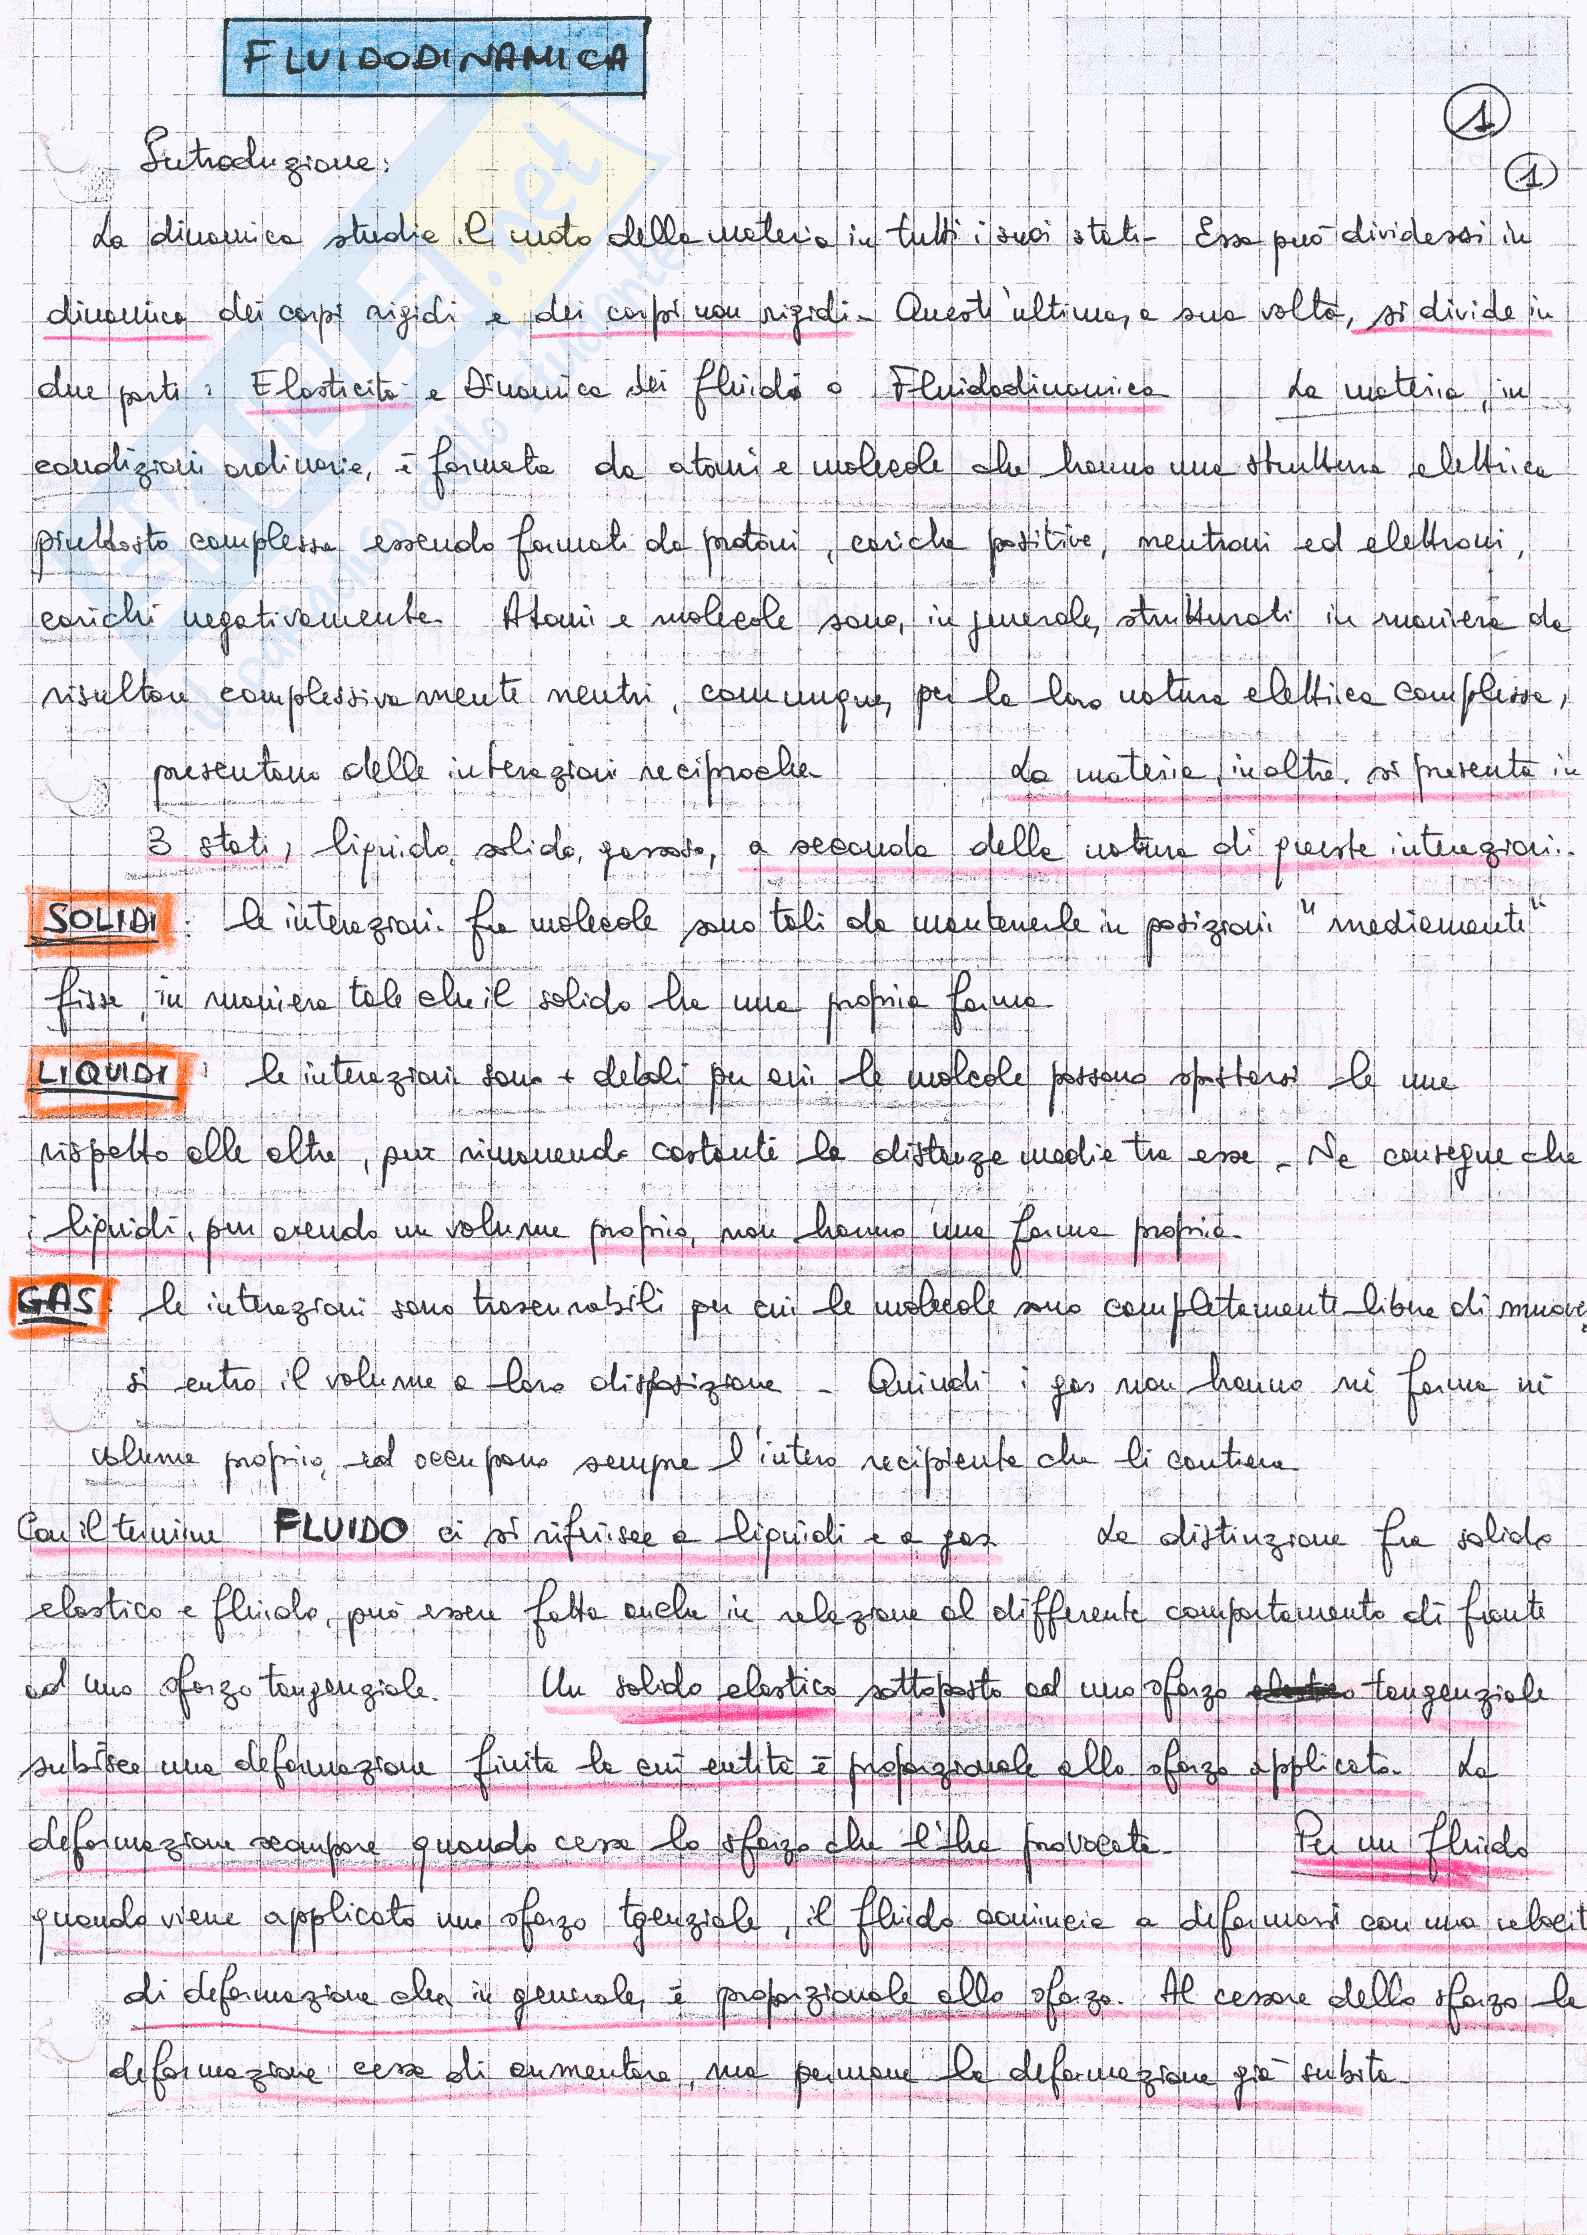 FLUIDODINAMICA
1
Introduzione:
1
La dinamica studia il moto della materia in tutti i suoi stati- Essa può dividersi in
dinamica dei corpi rigidi e dei corpi non rigidi- Quest'ultima, a sua volta, si divide in
due parti: Elasticità e Dinamica dei fluidi o Fluidodinamica La materia, in
condizioni ordinarie, è formata da atomi e molecole che hanno una struttura elettrica
piuttosto complessa essendo formati da protoni, cariche positive, neutroni ed elettroni,
carichi negativamente. Atomi e molecole sono, in generale, strutturati in maniera da
risultare complessivamente neutri, comunque, per la loro natura elettrica complessa,
presentano delle interazioni reciproche La materia, inoltre, si presenta in
3 stati, liquido, solido, gassoso, a seconda della natura di queste interazioni.
SOLIDI: le interazioni fra molecole sono tali da mantenerle in posizioni "mediamente"
fisse, in maniera tale che il solido ha una propria forma
LIQUIDI: le interazioni sono + deboli per cui le molcole possono spostarsi le une
rispetto alle altre, pur rimanendo costante la distanza media tra esse - Ne consegue che
i liquidi, pur avendo un volume proprio, non hanno una forma propria-
GAS: le interazioni sono trascurabili per cui le molecole sono completamente libere di muover
si entro il volume a loro disposizione - Quindi i gas non hanno né forma né
volume proprio, ed occupano sempre l'intero recipiente che li contiene
Con il termine FLUIDO ci si riferisce a liquidi e a gas La distinzione fra solido
elastico e fluido, può essere fatta anche in relazione al differente comportamento di fronte
ad uno sforzo tangenziale. Un solido elastico sottoposto ad uno sforzo tangenziale
subisce una deformazione finita la cui entità è proporzionale allo sforzo applicato- La
deformazione scompare quando cessa lo sforzo che l'ha provocata- Per un fluido
quando viene applicato uno sforzo tgenziale, il fluido comincia a deformarsi con una velocit
di deformazione che, in generale, è proporzionale allo sforzo. Al cessare dello sforzo la
deformazione cessa di aumentare, ma permane la deformazione già subita-